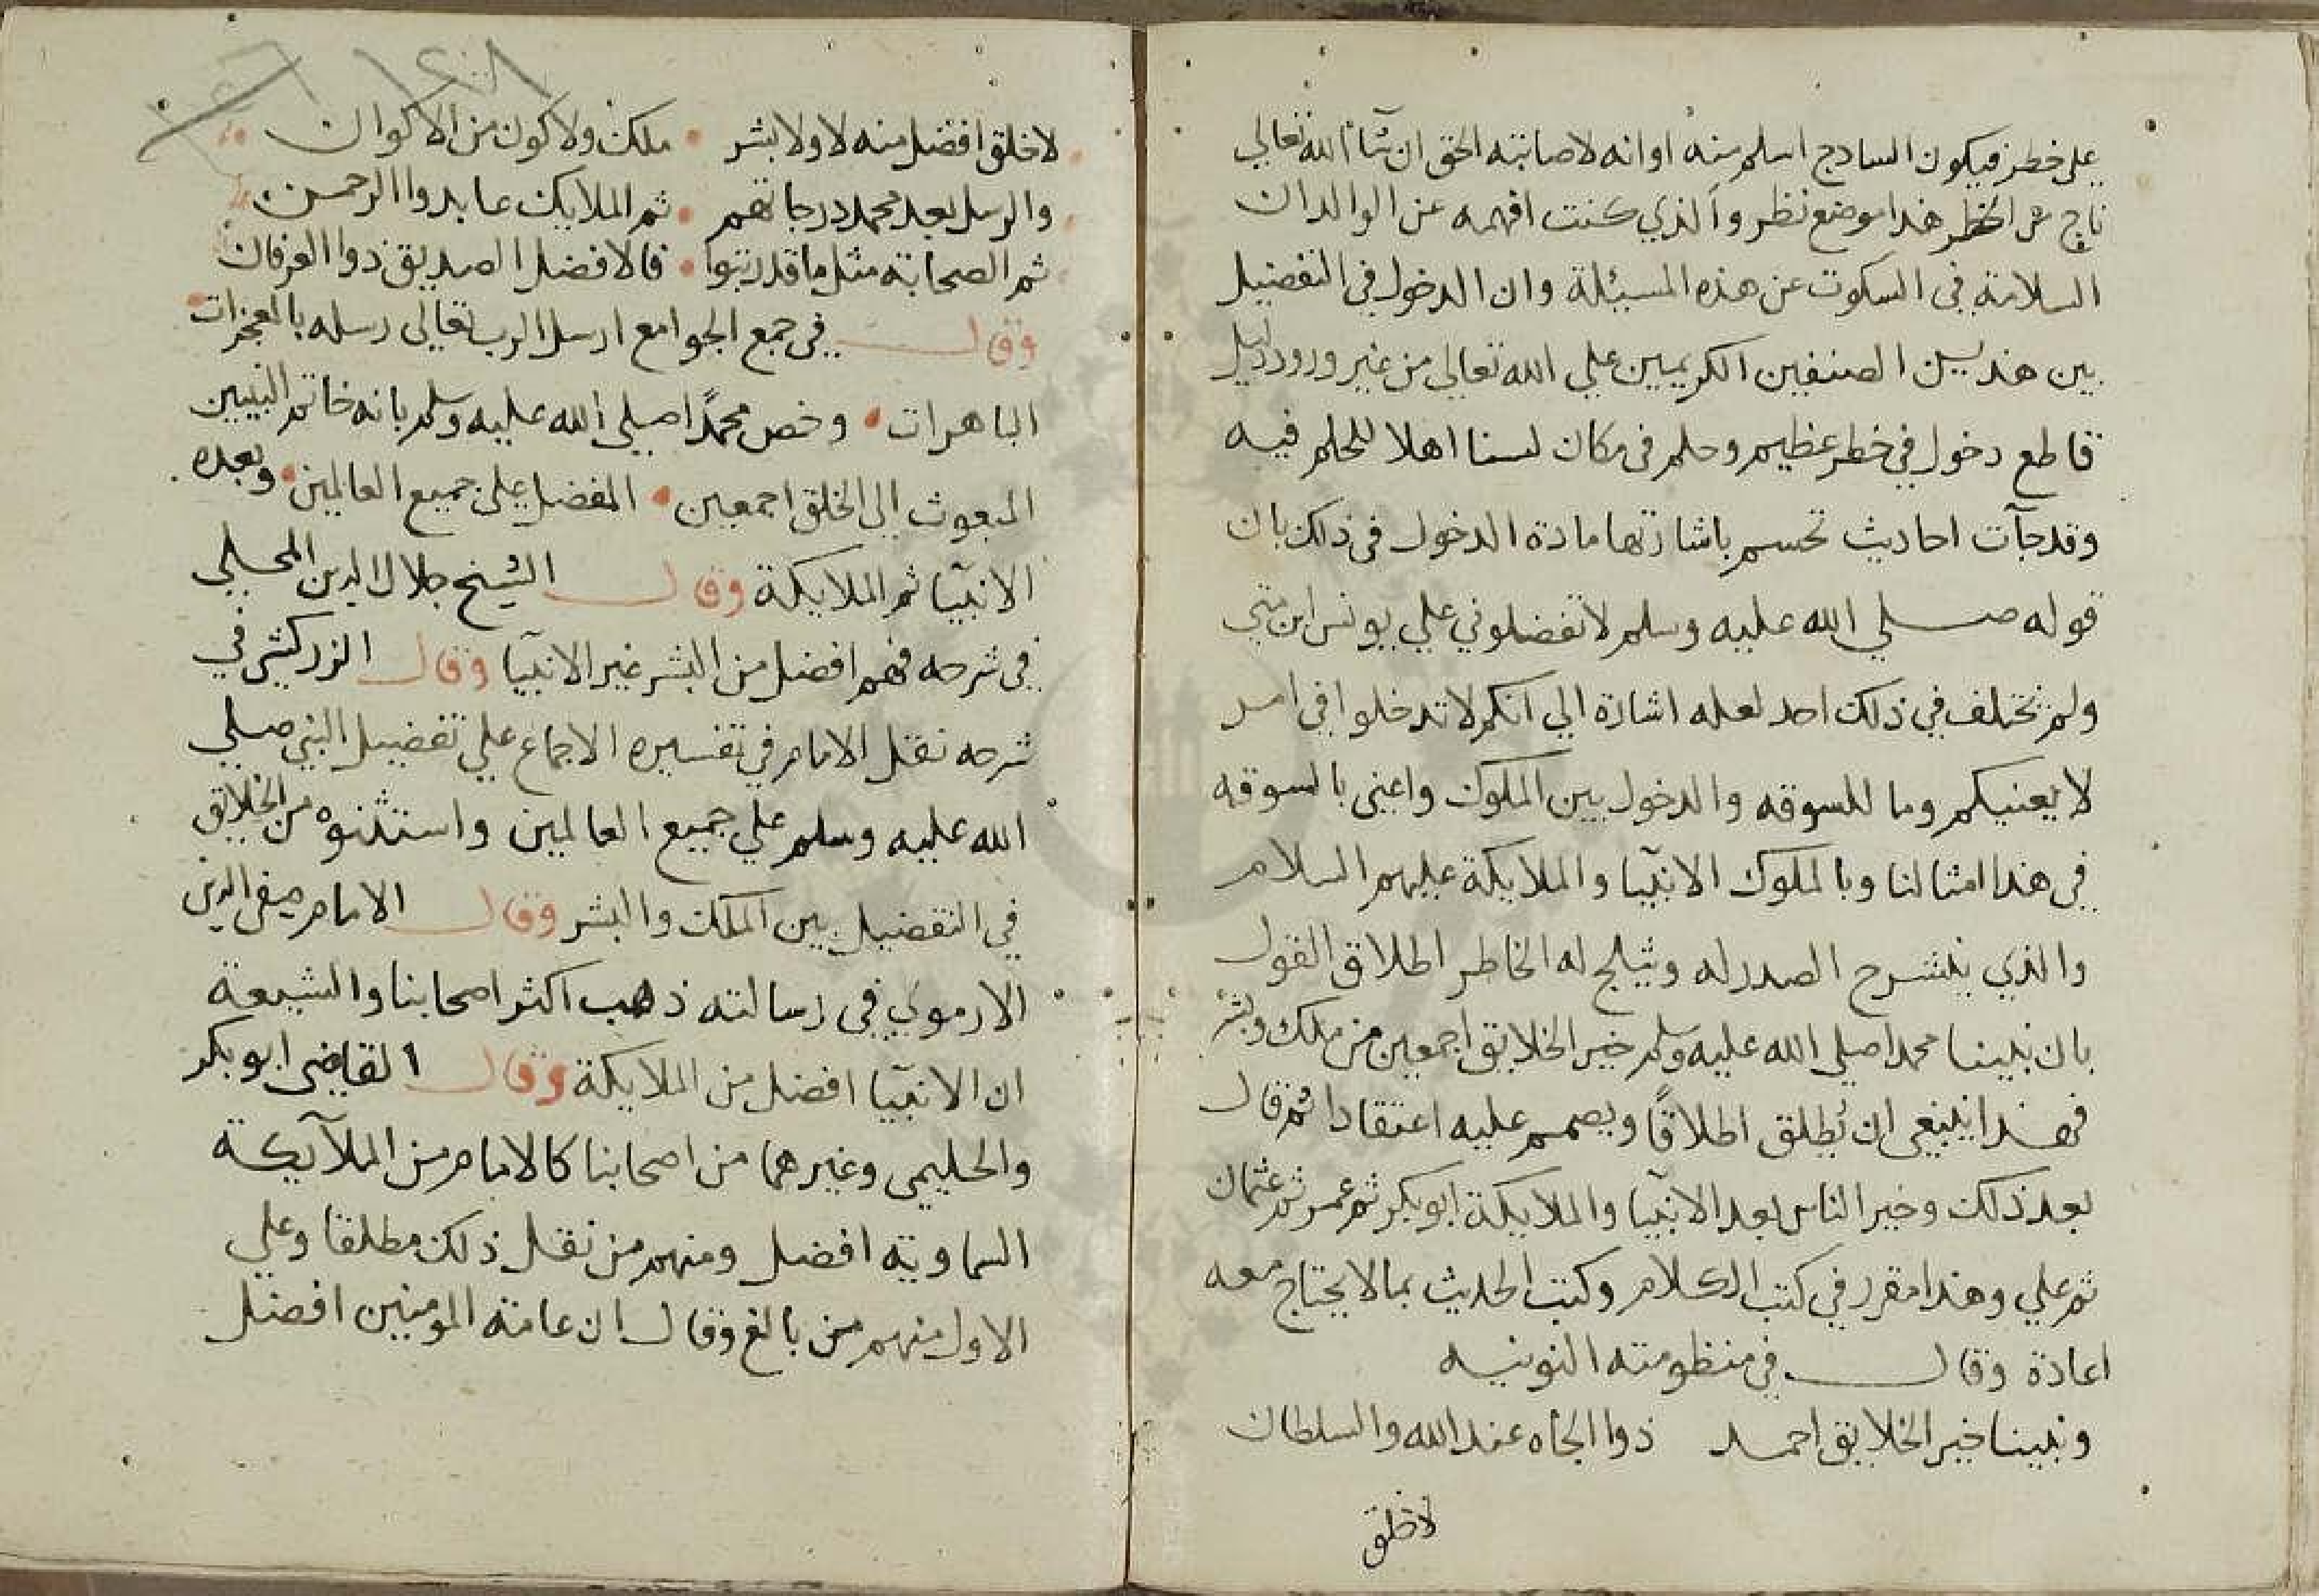 على خطر فيكون الساذج اسلم منه او انه لاصابته الحق ان شآ الله تعالي
ناج من الخطر هذا موضع نظر والذي كنت افهمه عن الوالد ان
السلامة في السكوت عن هذه المسيئلة وان الدخول في التفضيل
بين هذين الصنفين الكريمين علي الله تعالي من غير ورود دليل
قاطع دخول في خطر عظيم وحلم في مكان لسنا اهلا للحلم فيه
وقد جآت احاديث تحسم باشارتها مادة الدخول في ذلك بان
قوله صلي الله عليه وسلم لا تفضلوني علي يونس ابن متي
ولم تختلف في ذلك احد لعله اشارة الي انكم لا تدخلوا في امر
لا يعنيكم وما للسوقه والدخول بين الملوك واعني بالسوقه
في هذا امثالنا وبالملوك الانبيآ والملايكة عليهم السلام
والذي ينشرح الصدر له ويثلج له الخاطر اطلاق القول
بان نبينا محمدا صلي الله عليه وسلم خير الخلايق اجمعين من ملك وبشر
فهذا ينبغي ان يُطلق اطلاقًا ويصمم عليه اعتقادا ثم قال
بعد ذلك وخير الناس بعد الانبيآ والملايكة ابو بكر ثم عمر ثم عثمان
ثم علي وهذا مقرر في كتب الكلام وكتب الحديث بما لا يحتاج معه
اعادة وقال في منظومته النونيه
ونبينا خير الخلايق احمد ذوا الجاه عند الله والسلطان
لا خلق
١٤٠٨
لا خلق افضل منه لا ولا بشر • ملك ولا كون من الاكوان
والرسل بعد محمد درجاتهم • ثم الملايك عابدوا الرحمن
ثم الصحابة مثل ما قد رتبوا • فالافضل الصديق ذوا العرفان
وقال في جمع الجوامع ارسل الرب تعالي رسله بالمعجزات
الباهرات • وخص محمدًا صلي الله عليه وسلم بانه خاتم النبيين
المبعوث الي الخلق اجمعين • المفضل علي جميع العالمين • وبعده
الانبيآ ثم الملايكة وقال الشيخ جلال الدين المحلي
في شرحه فهم افضل من البشر غير الانبيآ وقال الزركشي في
شرحه نقل الامام في تفسيره الاجماع علي تفضيل النبي صلي
الله عليه وسلم علي جميع العالمين واستثنوه من الخلايق
في التفضيل بين الملك والبشر وقال الامام صفي الدين
الارموي في رسالته ذهب اكثر اصحابنا والشيعة
ان الانبيآ افضل من الملايكة وقال القاضي ابو بكر
والحليمي وغيرهما من اصحابنا كالامام من الملآيكة
السماوية افضل ومنهم من نقل ذلك مطلقا وعلي
الاول منهم من بالغ وقال ان عامة المومنين افضل